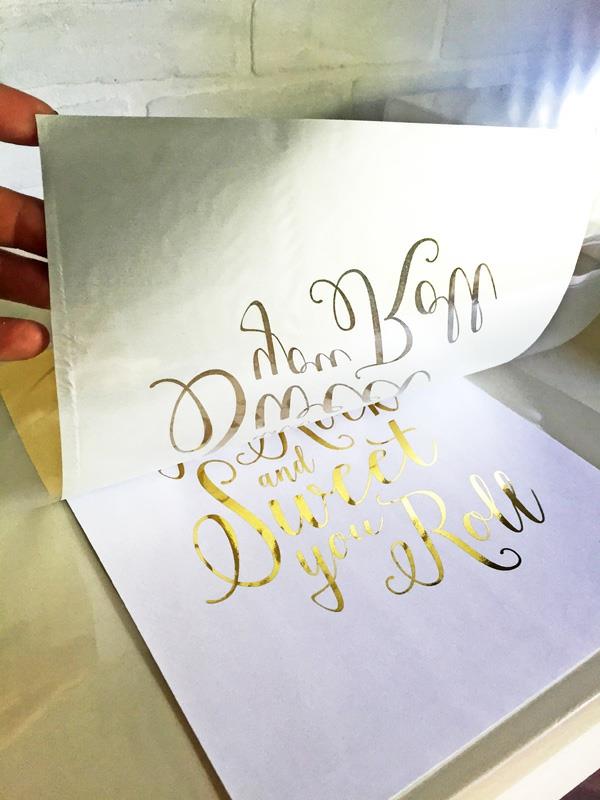 and
Sweet
you Roll